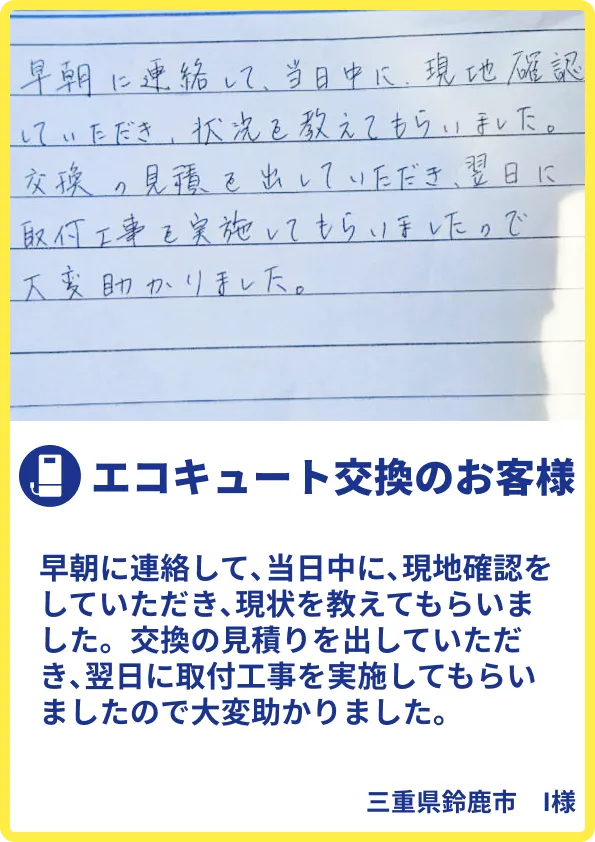 早朝に連絡して、当日中に、現地確認
していただき、状況を教えてもらいました。
交換の見積を出していただき、翌日に
取付工事を実施してもらいましたので
大変助かりました。
エコキュート交換のお客様
早朝に連絡して、当日中に、現地確認を
していただき、現状を教えてもらいま
した。交換の見積りを出していただ
き、翌日に取付工事を実施してもらい
ましたので大変助かりました。
三重県鈴鹿市 I様